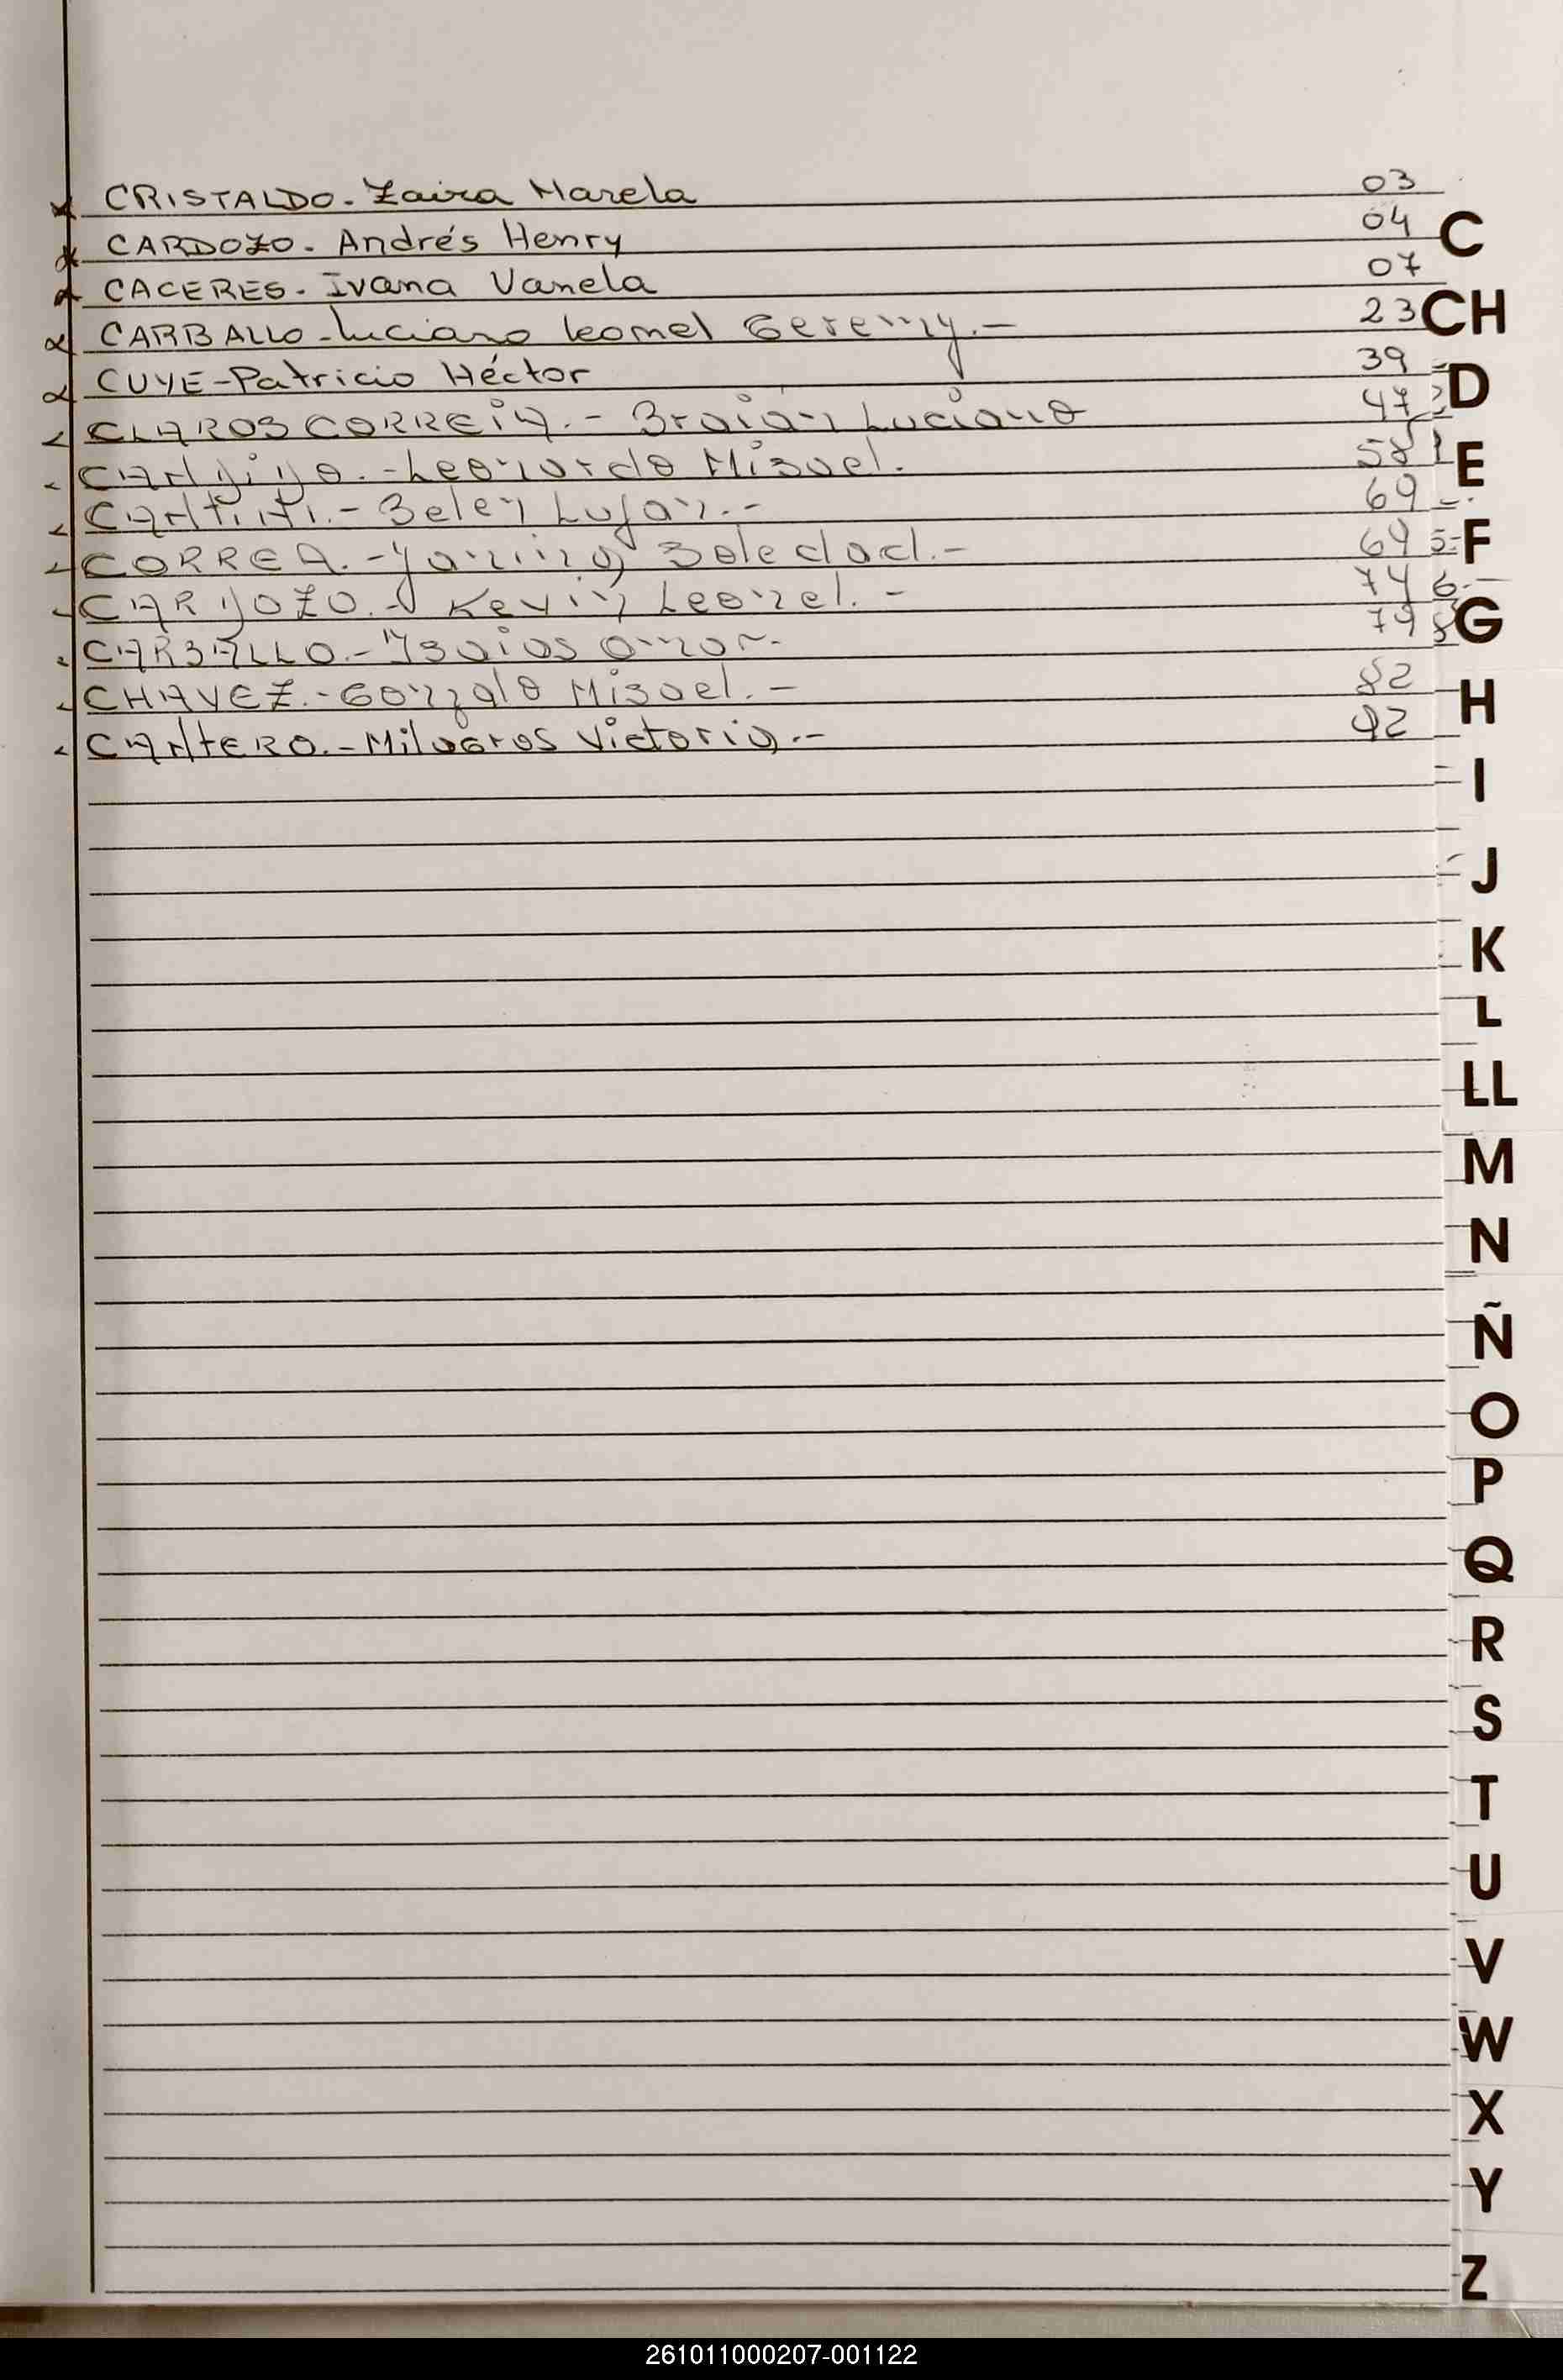 CRISTALDO. Zaira Marela 03
CARDOZO. Andrés Henry 04
CACERES. Ivana Vanela 07
CARBALLO - Luciano Leonel Geremy.- 23
CUYE - Patricio Héctor 39
CLAROS CORREIA.- Braian Luciano 47
Leonardo Miguel. 58
Belen Lujan.- 69
CORREA.- Yanina Soledad.- 69
CARDOZO.- Kevin Leonel.- 74
CARBALLO.- Isaias Omar. 79
CHAVEZ.- Gonzalo Miguel.- 82
CANTERO.- Milagros Victoria.- 92
C
CH
D
E
F
G
H
I
J
K
L
LL
M
N
Ñ
O
P
Q
R
S
T
U
V
W
X
Y
Z
261011000207-001122